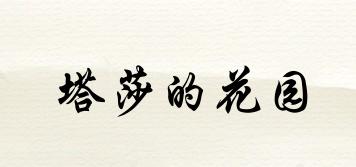 塔莎的花园